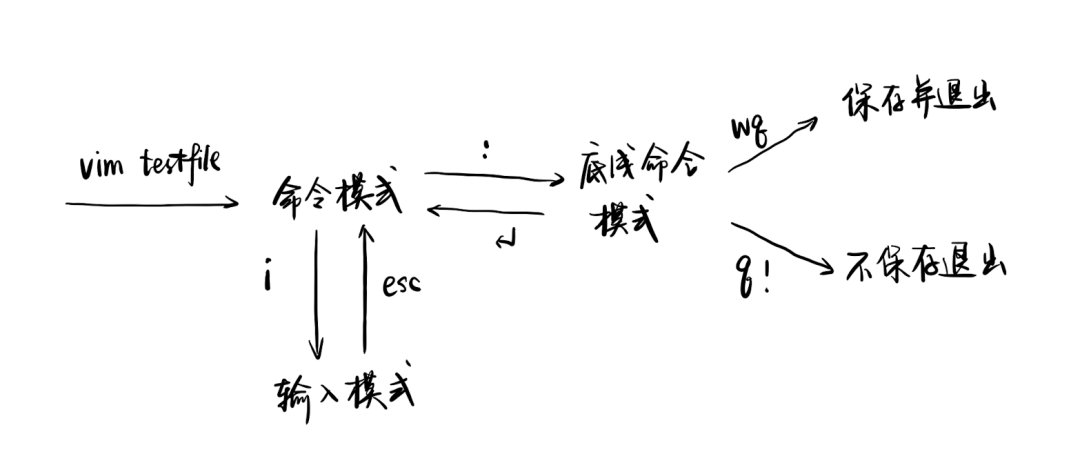 vim testfile
命令模式
:
底线命令
模式
↵
wq
保存并退出
q!
不保存退出
i
esc
输入模式